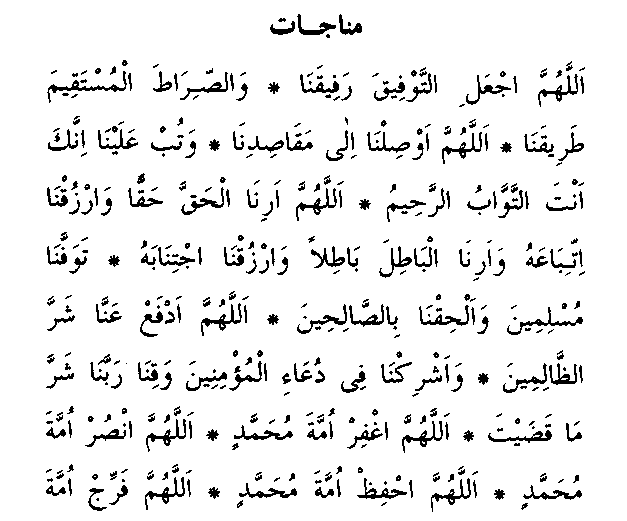 مناجـات
اَللّٰهُمَّ اجْعَلِ التَّوْفِيقَ رَفِيقَنَا * وَالصِّـرَاطَ الْمُسْتَقِيمَ
طَرِيقَنَا * اَللّٰهُمَّ اَوْصِلْنَا اِلٰى مَقَاصِدِنَا * وَتُبْ عَلَيْنَا اِنَّكَ
اَنْتَ التَّوَّابُ الرَّحِيمُ * اَللّٰهُمَّ اَرِنَا الْحَقَّ حَقًّا وَارْزُقْنَا
اِتِّـبَاعَهُ وَاَرِنَا الْبَاطِلَ بَاطِلاً وَارْزُقْنَا اجْتِنَابَهُ * تَوَفَّنَا
مُسْلِمِينَ وَاَلْحِقْنَا بِالصَّالِحِينَ * اَللّٰهُمَّ اَدْفَعْ عَنَّا شَرَّ
الظَّالِمِينَ * وَاَشْرِكْنَا فِى دُعَاءِ الْمُؤْمِنِينَ وَقِنَا رَبَّنَا شَرَّ
مَا قَضَيْتَ * اَللّٰهُمَّ اغْفِرْ اُمَّةَ مُحَمَّدٍ * اَللّٰهُمَّ انْصُرْ اُمَّةَ
مُحَمَّدٍ * اَللّٰهُمَّ احْفِظْ اُمَّةَ مُحَمَّدٍ * اَللّٰهُمَّ فَرِّجْ اُمَّةَ